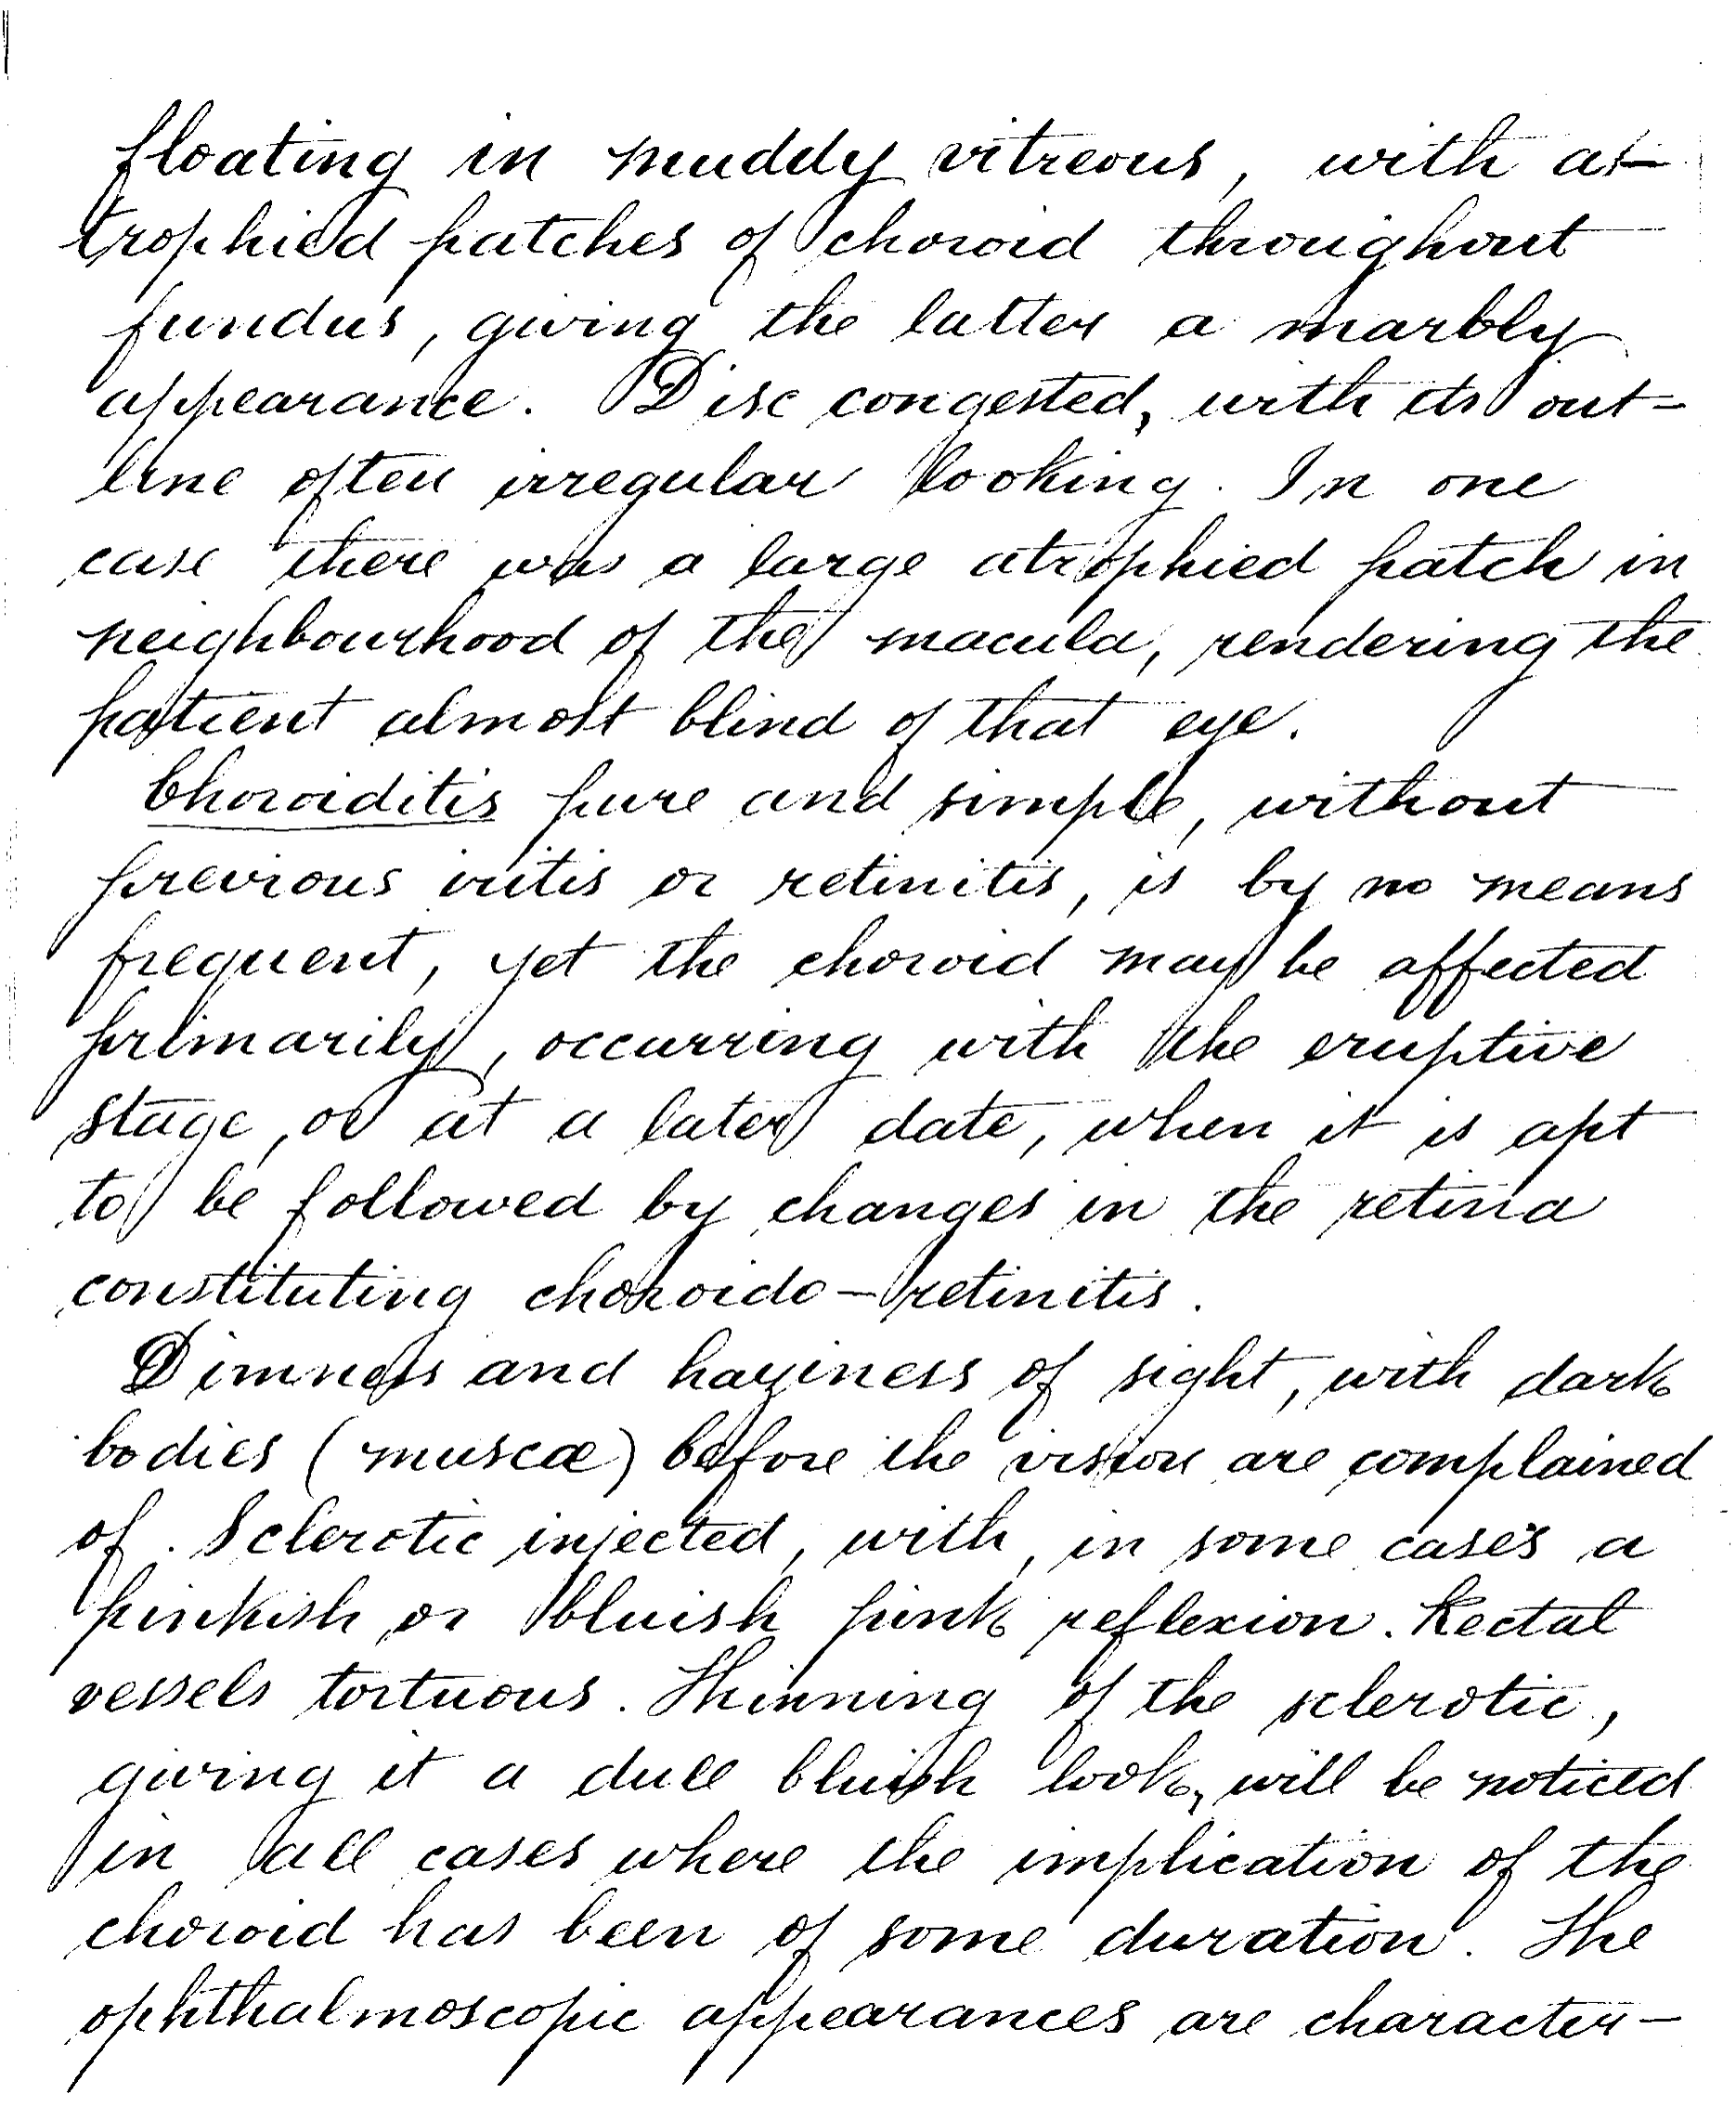 floating in muddy vitreous, with at-
trophied patches of choroid throughout
fundus, giving the latter a marbly
appearance. Disc congested, with its out-
line often irregular looking. In one
case there was a large atrophied patch in
neighbourhood of the macula, rendering the
patient almost blind of that eye.
Choroiditis pure and simple, without
previous iritis or retinitis, is by no means
frequent, yet the choroid may be affected
primarily, occurring with the eruptive
stage, or at a later date, when it is apt
to be followed by changes in the retina
constituting choroido-retinitis.
Dimness and haziness of sight, with dark
bodies (muscæ) before the vision are complained
of. Sclerotic injected, with, in some cases a
pinkish or bluish pink reflexion. Rectal
vessels tortuous. Thinning of the sclerotic,
giving it a dull bluish look, will be noticed
in all cases where the implication of the
choroid has been of some duration. The
ophthalmoscopic appearances are character-